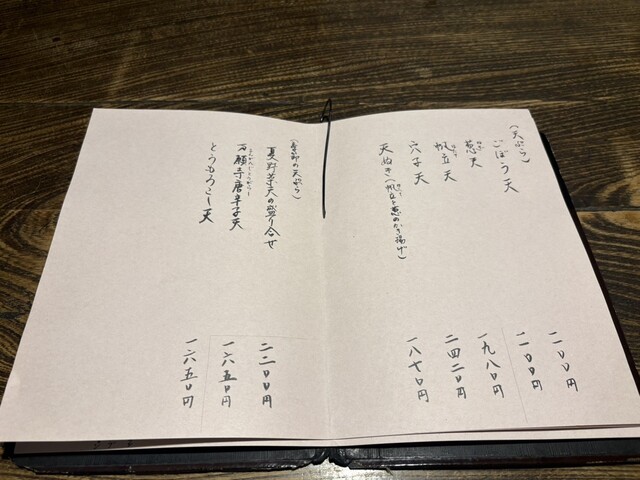 (天ぷら)
ごぼう天 一一〇〇円
葱天 一一〇〇円
帆立天 一九八〇円
穴子天 二四二〇円
天ぬき(と葱のかき揚げ) 一八七〇円
(季節の天ぷら)
夏野菜天の盛り合せ 二二〇〇円
万願寺唐辛子天 一六五〇円
とうもろこし天 一六五〇円